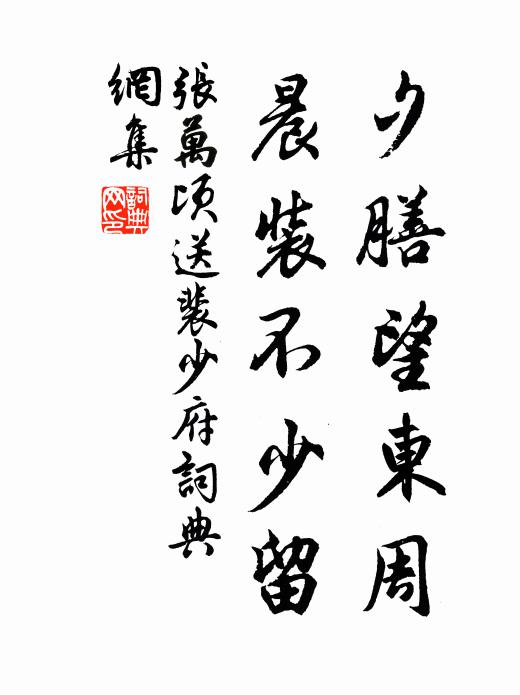 夕膳望東周
晨裝不少留
張萬頃送裴少府詞典
網集
詞典網印